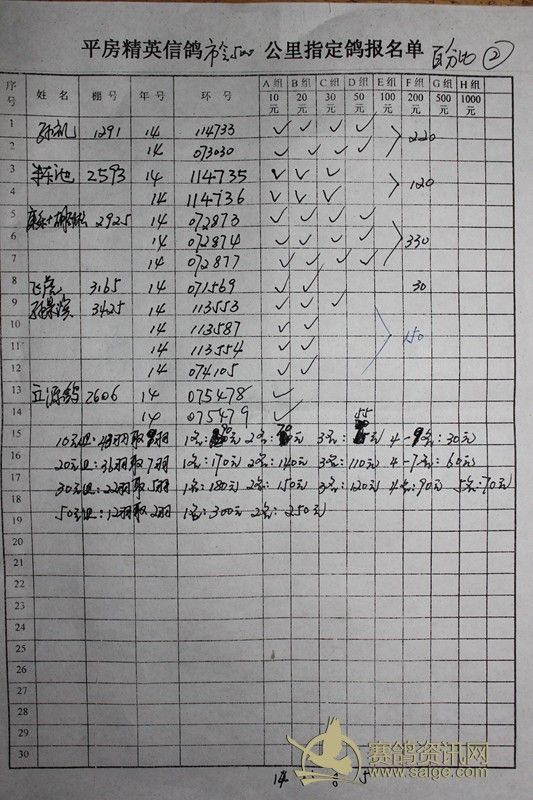 平房精英信鸽 市 500 公里指定鸽报名单 百分比 ②
序号 姓名 棚号 年号 环号 A组 10元 B组 20元 C组 30元 D组 50元 E组 100元 F组 200元 G组 500元 H组 1000元
1 1291 14 114733 ✓ ✓ ✓ ✓ 220
2 14 073030 ✓ ✓ ✓ ✓
3 2593 14 114735 ✓ ✓ ✓ 120
4 14 114736 ✓ ✓ ✓
5 2925 14 072873 ✓ ✓ ✓ ✓
6 14 072874 ✓ ✓ ✓ ✓ 330
7 14 072877 ✓ ✓ ✓ ✓
8 飞虎 3165 14 071569 ✓ ✓ 30
9 3425 14 113553 ✓ ✓ ✓
10 14 113587 ✓ ✓ 150
11 14 113554 ✓ ✓
12 14 074105 ✓ ✓
13 立源鸽 2606 14 075478 ✓
14 14 075479 ✓
15 10元组: 取 羽 1名: 元 2名: 元 3名: 55元 4-9名: 30元
16 20元组: 36羽取7羽 1名: 170元 2名: 140元 3名: 110元 4-7名: 60元
17 30元组: 22羽取5羽 1名: 180元 2名: 150元 3名: 120元 4名: 90元 5名: 70元
18 50元组: 12羽取2羽 1名: 300元 2名: 250元
19
20
21
22
23
24
25
26
27
28
29
30
14 6 5
赛鸽资讯网
www.saige.com